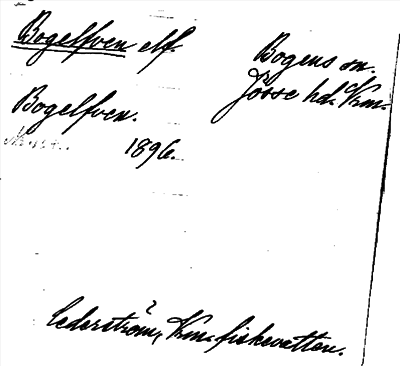 Bogelfven elf.
Bogens sn.
Jösse hd. Krm.
Bogelfven.
1896.
Cederström, Krm. fiskevatten.